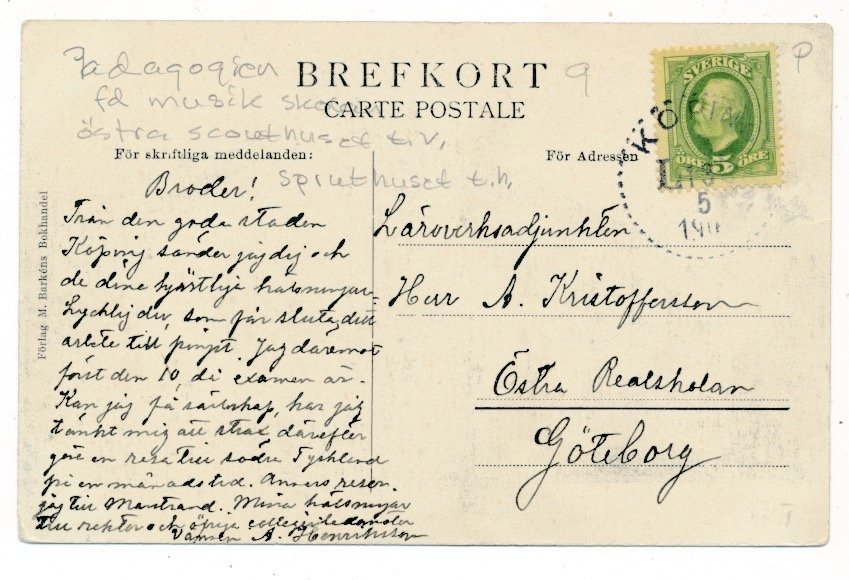 Pædagogien
fd musik skolan
östra scouthuset t.v,
spruthuset t.h,
9
P
BREFKORT
CARTE POSTALE
För skriftliga meddelanden:
För Adressen
SVERIGE
ÖRE 5 ÖRE
KÖPING
L
5
191
Förlag M. Barkéns Bokhandel
Broder!
Från den goda staden
Köping sänder jag dig och
de dina hjärtliga hälsningar.
Lycklig du, som får sluta ditt
arbete till pingst. Jag däremot
först den 10, då examen är.
Kan jag få sällskap, har jag
tänkt mig att strax därefter
göra en resa till södra Tyskland
på en månads tid. Annars reser
jag till Marstrand. Mina hälsningar
till rektor och öfriga collegieledamöter
Vännen A. Henriksson
Läroverksadjunkten
Herr A. Kristoffersson
Östra Realskolan
Göteborg